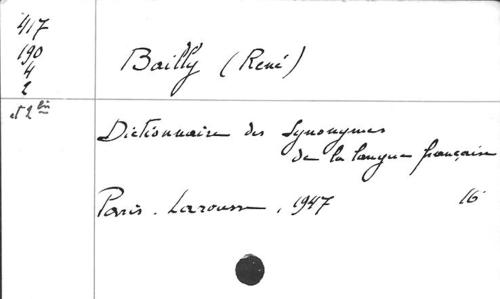 417
190
4
2
et 2 bis
Bailly (René)
Dictionnaire des Synonymes
de la langue française
Paris. Larousse, 1947 16